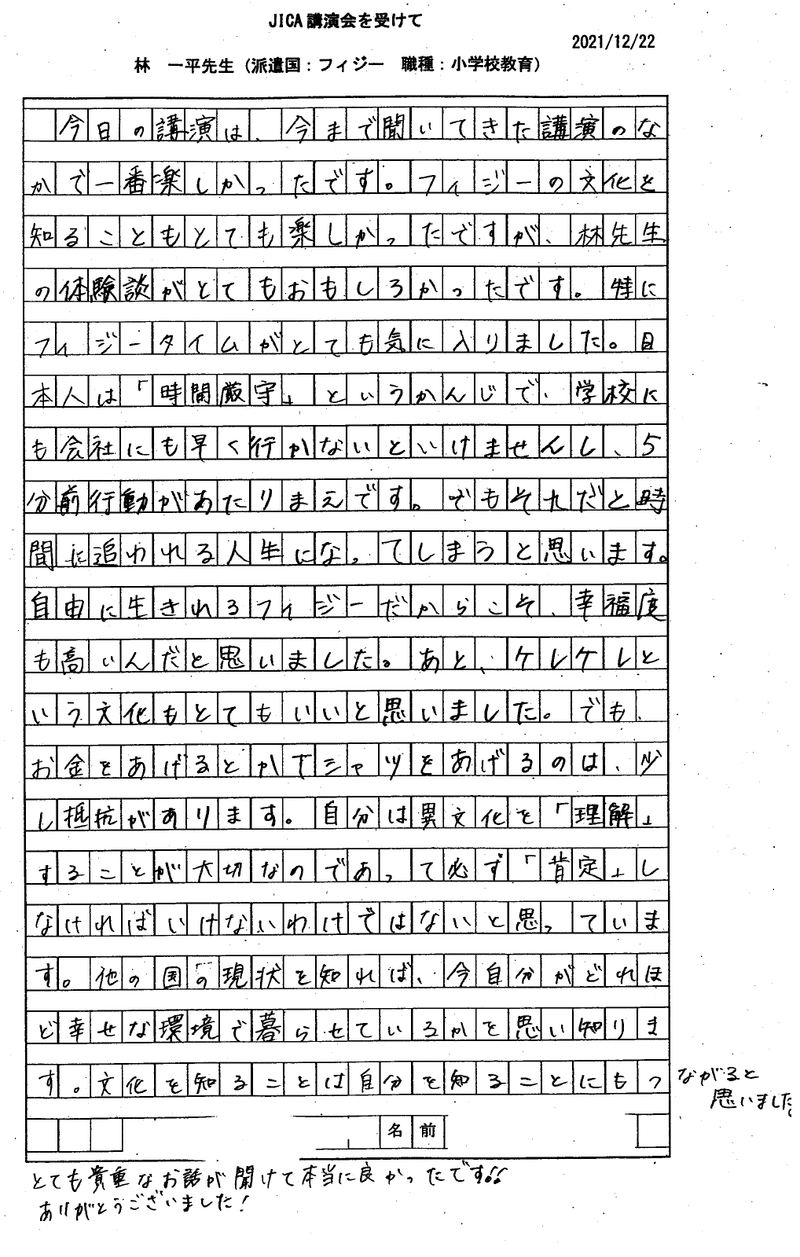 JICA講演会を受けて
2021/12/22
林　一平先生（派遣国：フィジー　職種：小学校教育）
　今日の講演は、今まで聞いてきた講演のな
かで一番楽しかったです。フィジーの文化を
知ることもとても楽しかったですが、林先生
の体験談がとてもおもしろかったです。特に
フィジータイムがとても気に入りました。日
本人は「時間厳守」というかんじで、学校に
も会社にも早く行かないといけませんし、5
分前行動があたりまえです。でもそれだと時
間に追われる人生になってしまうと思います。
自由に生きれるフィジーだからこそ、幸福度
も高いんだと思いました。あと、ケレケレと
いう文化もとてもいいと思いました。でも、
お金をあげるとかTシャツをあげるのは、少
し抵抗があります。自分は異文化を「理解」
することが大切なのであって必ず「肯定」し
なければいけないわけではないと思っていま
す。他の国の現状を知れば、今自分がどれほ
ど幸せな環境で暮らせているかを思い知りま
す。文化を知ることは自分を知ることにもつ
ながると
思いました。
名前
とても貴重なお話が聞けて本当に良かったです!!
ありがとうございました！